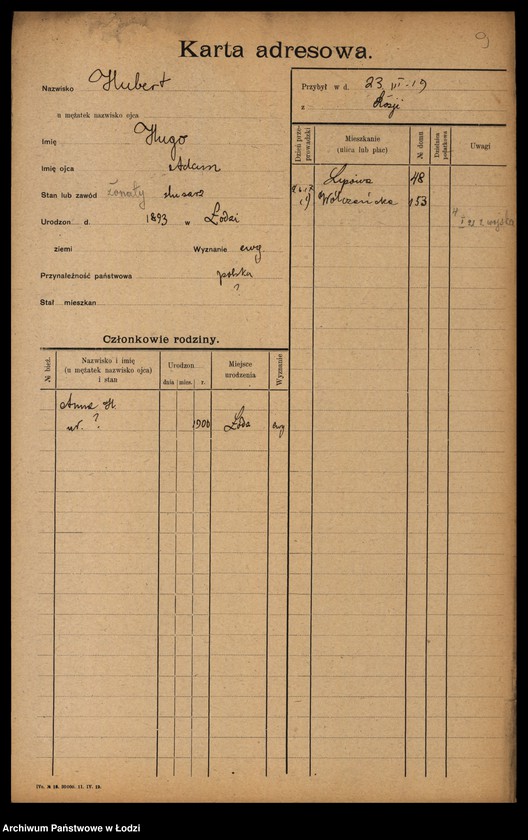 9
Karta adresowa.
Nazwisko Hubert
u mężatek nazwisko ojca
Imię Hugo
Imię ojca Adam
Stan lub zawód żonaty ślusarz
Urodzon d. 1893 w Łodzi
ziemi Wyznanie ewg
Przynależność państwowa polska
Stał mieszkan ?
Przybył w d. 23 III - 19
z Rosji
Dzień przeprowadzki
Mieszkanie (ulica lub plac)
№ domu
Dzielnica podatkowa
Uwagi
Lipowa 48
19 Wólczańska 153
Członkowie rodziny.
№ bież.
Nazwisko i imię (u mężatek nazwisko ojca) i stan
Urodzon
dnia mies. r.
Miejsce urodzenia
Wyznanie
Anna H
ur. ? 1900 Łódź ewg
Archiwum Państwowe w Łodzi